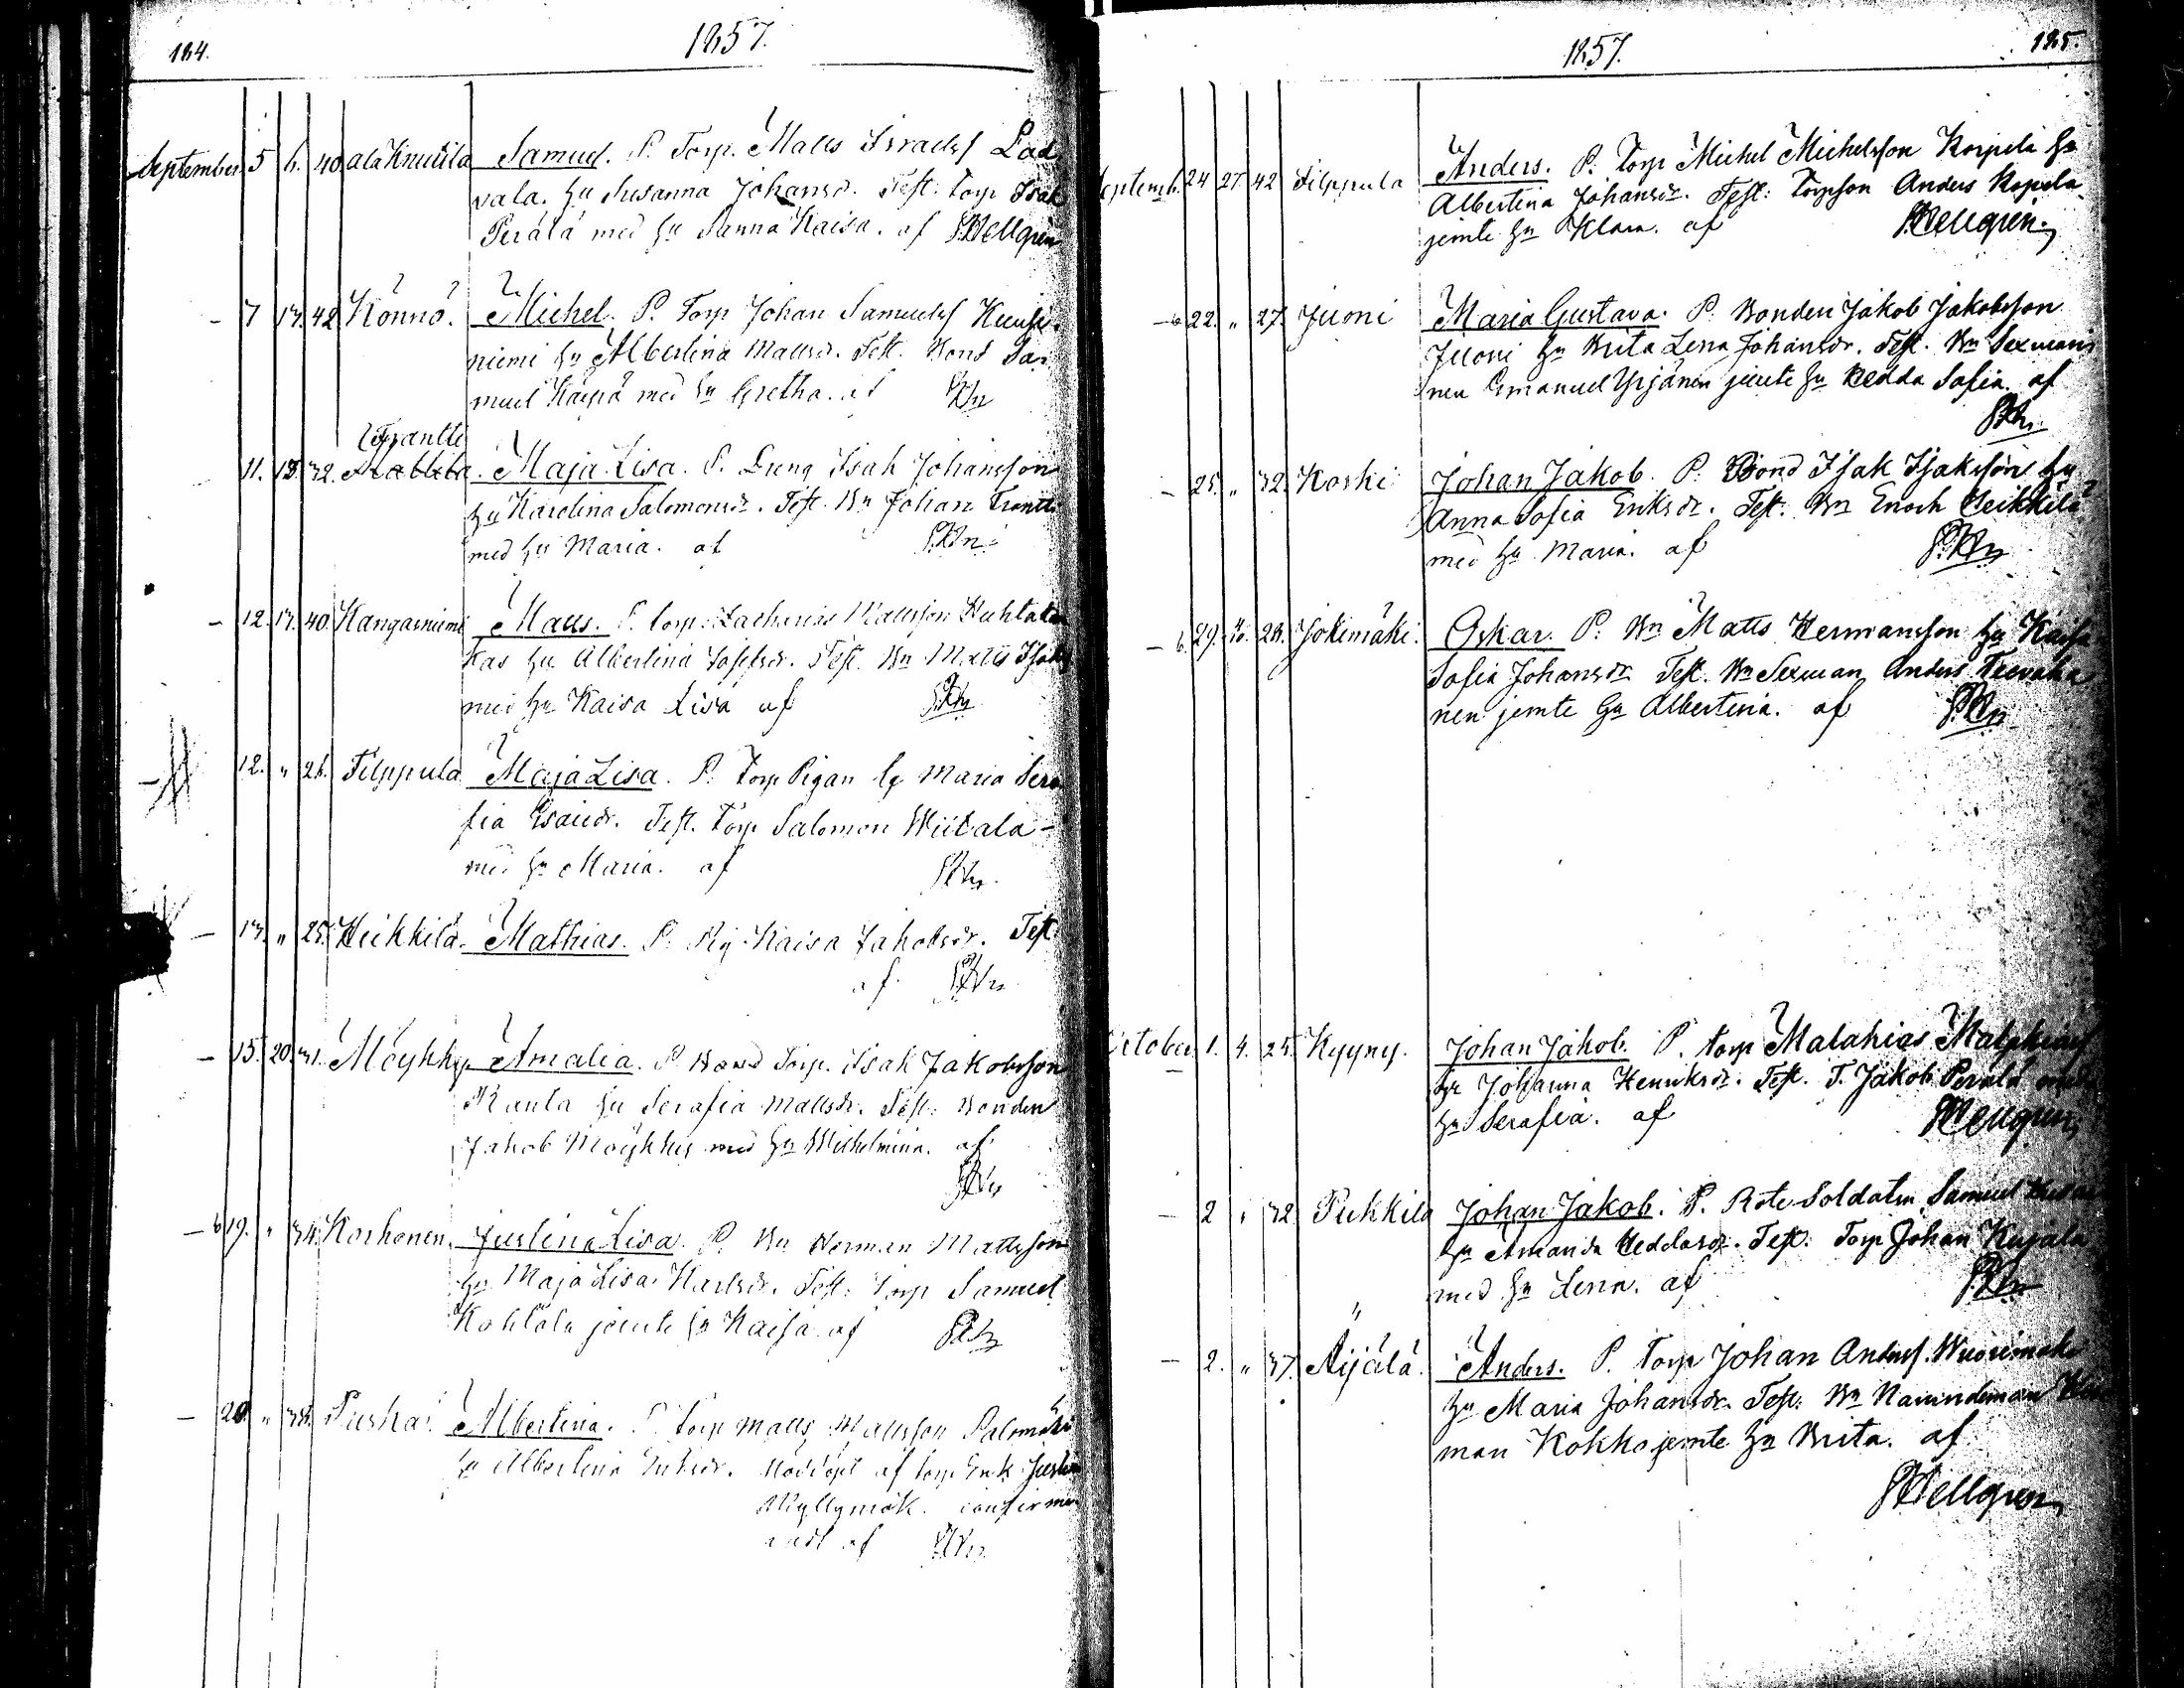 184.
1857.
September 5 6. 40. ala Knuutila Samuel. P. Torp. Matts Israelss Lad
vala. hu Susanna Johansdr. Test. Torp Isak
Perälä med hu Sanna Kaisa. af Hellgren
7 13. 42 Könnö. Michel. P. Torp Johan Samuelss Kuusi-
niemi hu Albertina Mattsdr. Test. Bond Sa-
muel Käyrä med hu Gretha. af
Frantti
11. 13. 32. Maja Lisa. P. Drng Isak Johansson
hu Karolina Salomonsdr. Test. Bn Johan Frantti
med hu Maria. af
12. 13. 40. Kangasniemi Matts. P. Torp. Zacharias Mattsson Huhta
kas hu Albertina Josefsdr. Test. Bn Matts
med hu Kaisa Lisa af
12. " 26. Filppula Maja Lisa. P. Torp Pigan Maria Sera
fia Esaiedr. Test. Torp Salomon Wiitala
med hu Maria. af
13. " 25. Heikkilä. Mathias. P. Pig. Kaisa Jakobsdr. Test.
af
15. 20. 31. Möykky. Amalia. P. Bond Torp. Isak Jakobsson
Ranta hu Serafia Mattsdr. Test: Bonden
Jakob Möykky med hu Wilhelmina. af
19. " 34. Korhonen. Justina Lisa. P. Bn Herman Mattsson
hu Maja Lisa Karlsdr. Test: Torp Samuel
Kohtala jemte hu Kaisa af
20. " 38. Puska. Albertina. P. Torp Matts Mattsson Salomäki
hu Albertina Eriksdr. Nöddöpt af torp Erik
Myllymäk. confirme
radt af
1857.
185.
Septemb. 24 27. 42 Filppula Anders. P. Torp Michel Michelsson Korpela hu
Albertina Johansdr. Test: Torpson Anders Kopela
jemte hu Klara. af Hellgren.
22. " 27. Juoni Maria Gustava. P. Bonden Jakob Jakobsson
Juoni hu Brita Lena Johansdr. Test. Bn Sexman
nen Emanuel Yrjänen jemte hu Hedda Sofia. af
25. " 32. Koski Johan Jakob. P. Bond Isak Isaksson hu
Anna Sofia Eriksdr. Test: Bn Enoch Heikkilä
med hu Maria. af
29. 30. 28. Jokimäki. Oskar. P: Bn Matts Hermansson hu Kaisa
Sofia Johansdr. Test. Bn Sexman Anders
nen jemte hu Albertina. af
October 1. 4. 25. Kyyny. Johan Jakob. P. torp Malakias Malakias
hu Johanna Henriksdr. Test. T. Jakob Perälä med
hu Serafia. af Hellgren
2 " 32 Pukkila Johan Jakob. P. Rote Soldaten Samuel
hu Amanda Heddasdr. Test: Torp Johan Kujala
med hu Lena. af
"
2. " 37. Äijälä. Anders. P. Torp Johan Anderss. Wuorimäki
hu Maria Johansdr. Test: Bn Nämndeman
man Kokko jemte hu Brita. af
Hellgren